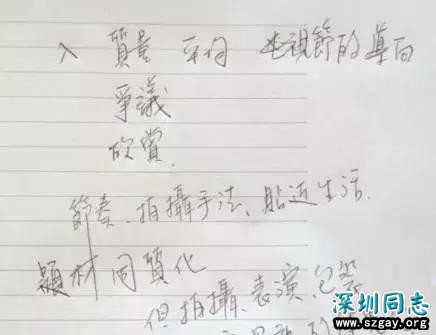 入 質量 平均 電視節的導向
爭議
欣賞.
節奏、拍攝手法、貼近生活.
題材同質化
但拍攝、表演、包裝
深圳同志
www.szgay.org